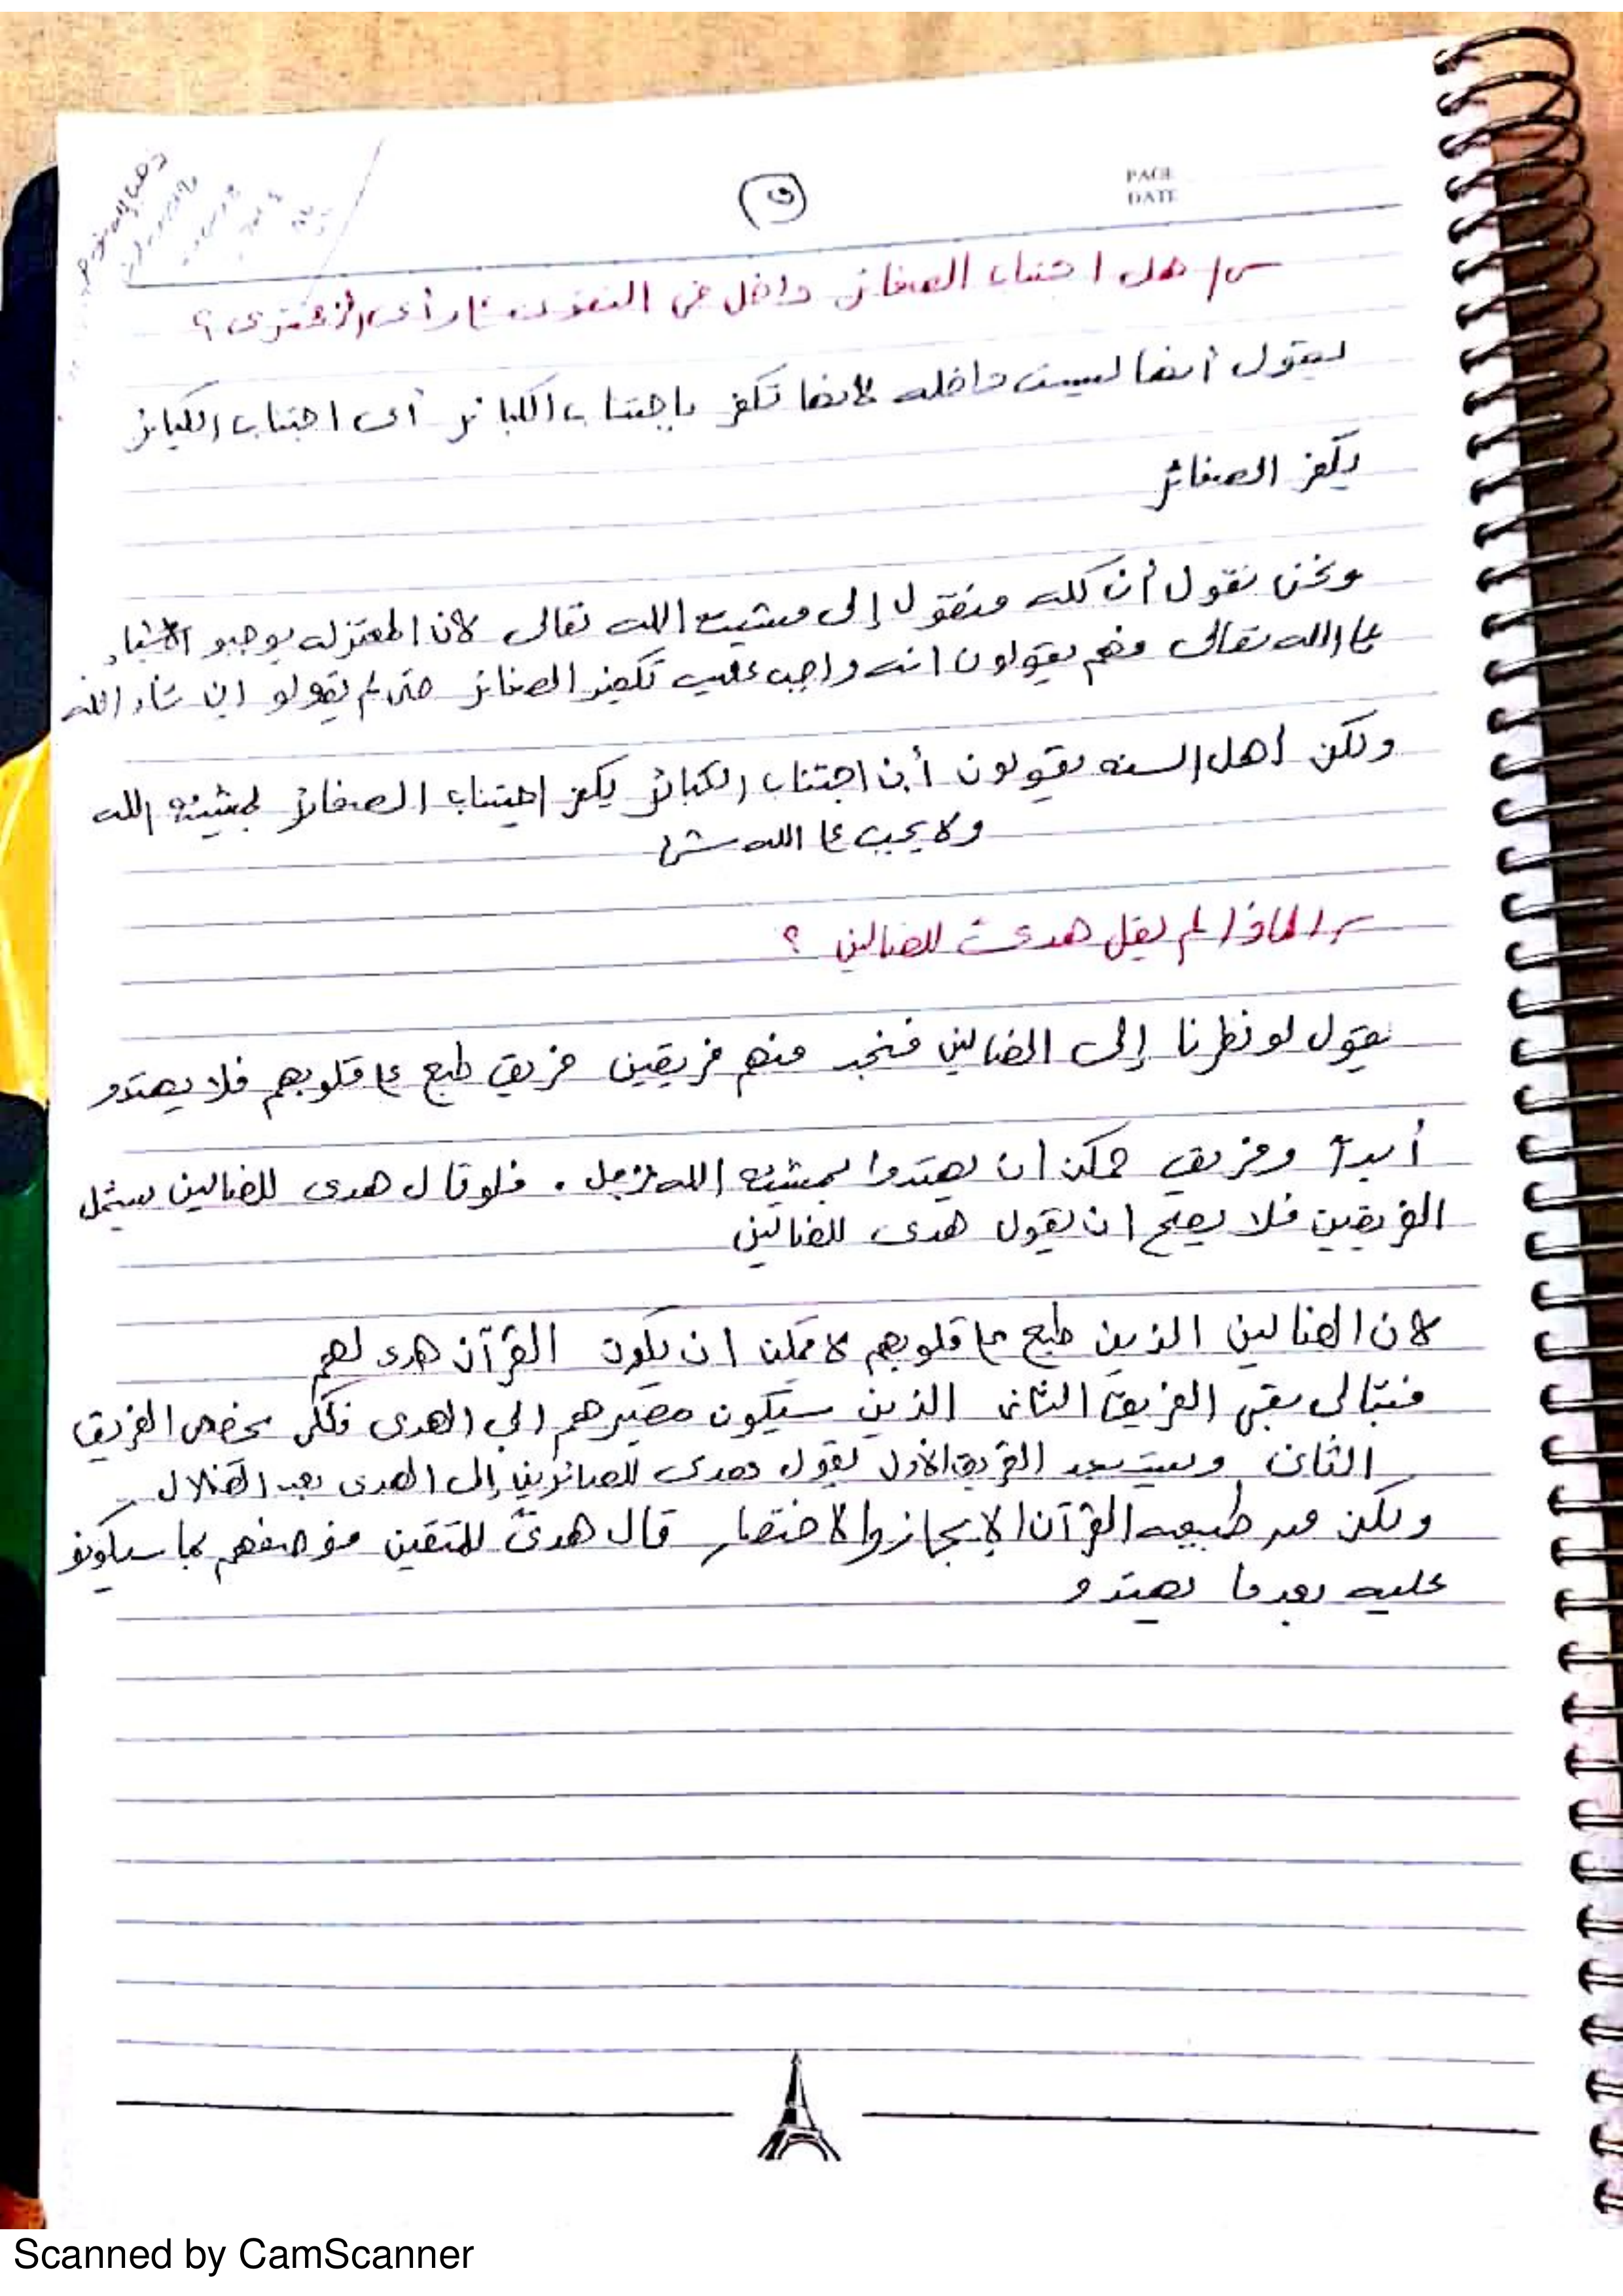 PAGE
DATE
س/ هل اجتناب الصغائر داخل في التقوى رأي الزمخشري ؟
يقول أيضا ليست داخله لانها تكفر باجتناب الكبائر أى اجتناب الكبائر
يكفر الصغائر
ونحن نقول أن كله منقول إلى مشيئة الله تعالى لان المعتزله يوجبو الاشياء
على الله تعالى فهم يقولون انه واجب عليه تكفير الصغائر حتى لم يقولو ان شاء الله
ولكن اهل السنه يقولون أن اجتناب الكبائر يكفر اجتناب الصغائر بمشيئة الله
ولا يجب على الله شئ
س/ لماذا لم يقل هدى للضالين ؟
يقول لو نظرنا إلى الضالين فنجد منهم فريقين فريق طبع على قلوبهم فلا يهتدو
أبدآ وفريق ممكن ان يهتدوا بمشيئة الله عزوجل . فلو قال هدى للضالين سيشمل
الفريقين فلا يصح ان يقول هدى للضالين
لان الضالين الذين طبع على قلوبهم لا يمكن ان يكون القرآن هدى لهم
فبتالى يبقى الفريق الثانى الذين سيكون مصيرهم الي الهدى فلكى يخص الفريق
الثانى ويستبعد الفريق الأول يقول هدى للصائرين إلى الهدى بعد الضلال
ولكن من طبيعه القرآن الإيجاز والاختصار قال هدىً للمتقين فوصفهم بما سيكونو
عليه بعدما يهتدو
Scanned by CamScanner